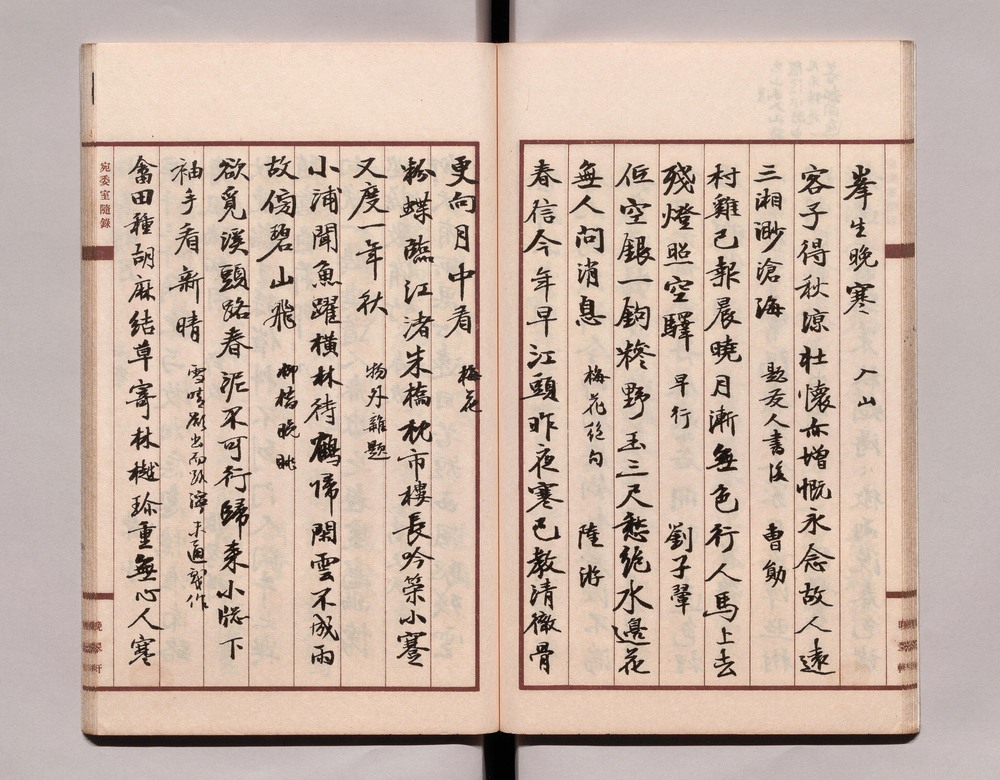 峯生晚寒 入山
客子得秋涼壯懷亦增慨永念故人遠
三湘渺滄海 題友人書後 曹勛
村雞已報晨曉月漸無色行人馬上去
殘燈照空驛 早行 劉子翬
佢空銀一鉤糝野玉三尺愁絕水邊花
無人問消息 梅花絕句 陸游
春信今年早江頭昨夜寒已教清徹骨
更向月中看 梅花
粉蝶臨江渚朱橋枕市樓長吟策小蹇
又度一年秋 物外雜題
小浦聞魚躍橫林待鶴歸閑雲不成雨
故傍碧山飛 柳橋晚眺
欲覓溪頭路春泥不可行歸來小窗下
袖手看新晴 雪晴欲出而路濘未通戲作
畬田種胡麻結草寄林樾珍重無心人寒
宛委室隨錄